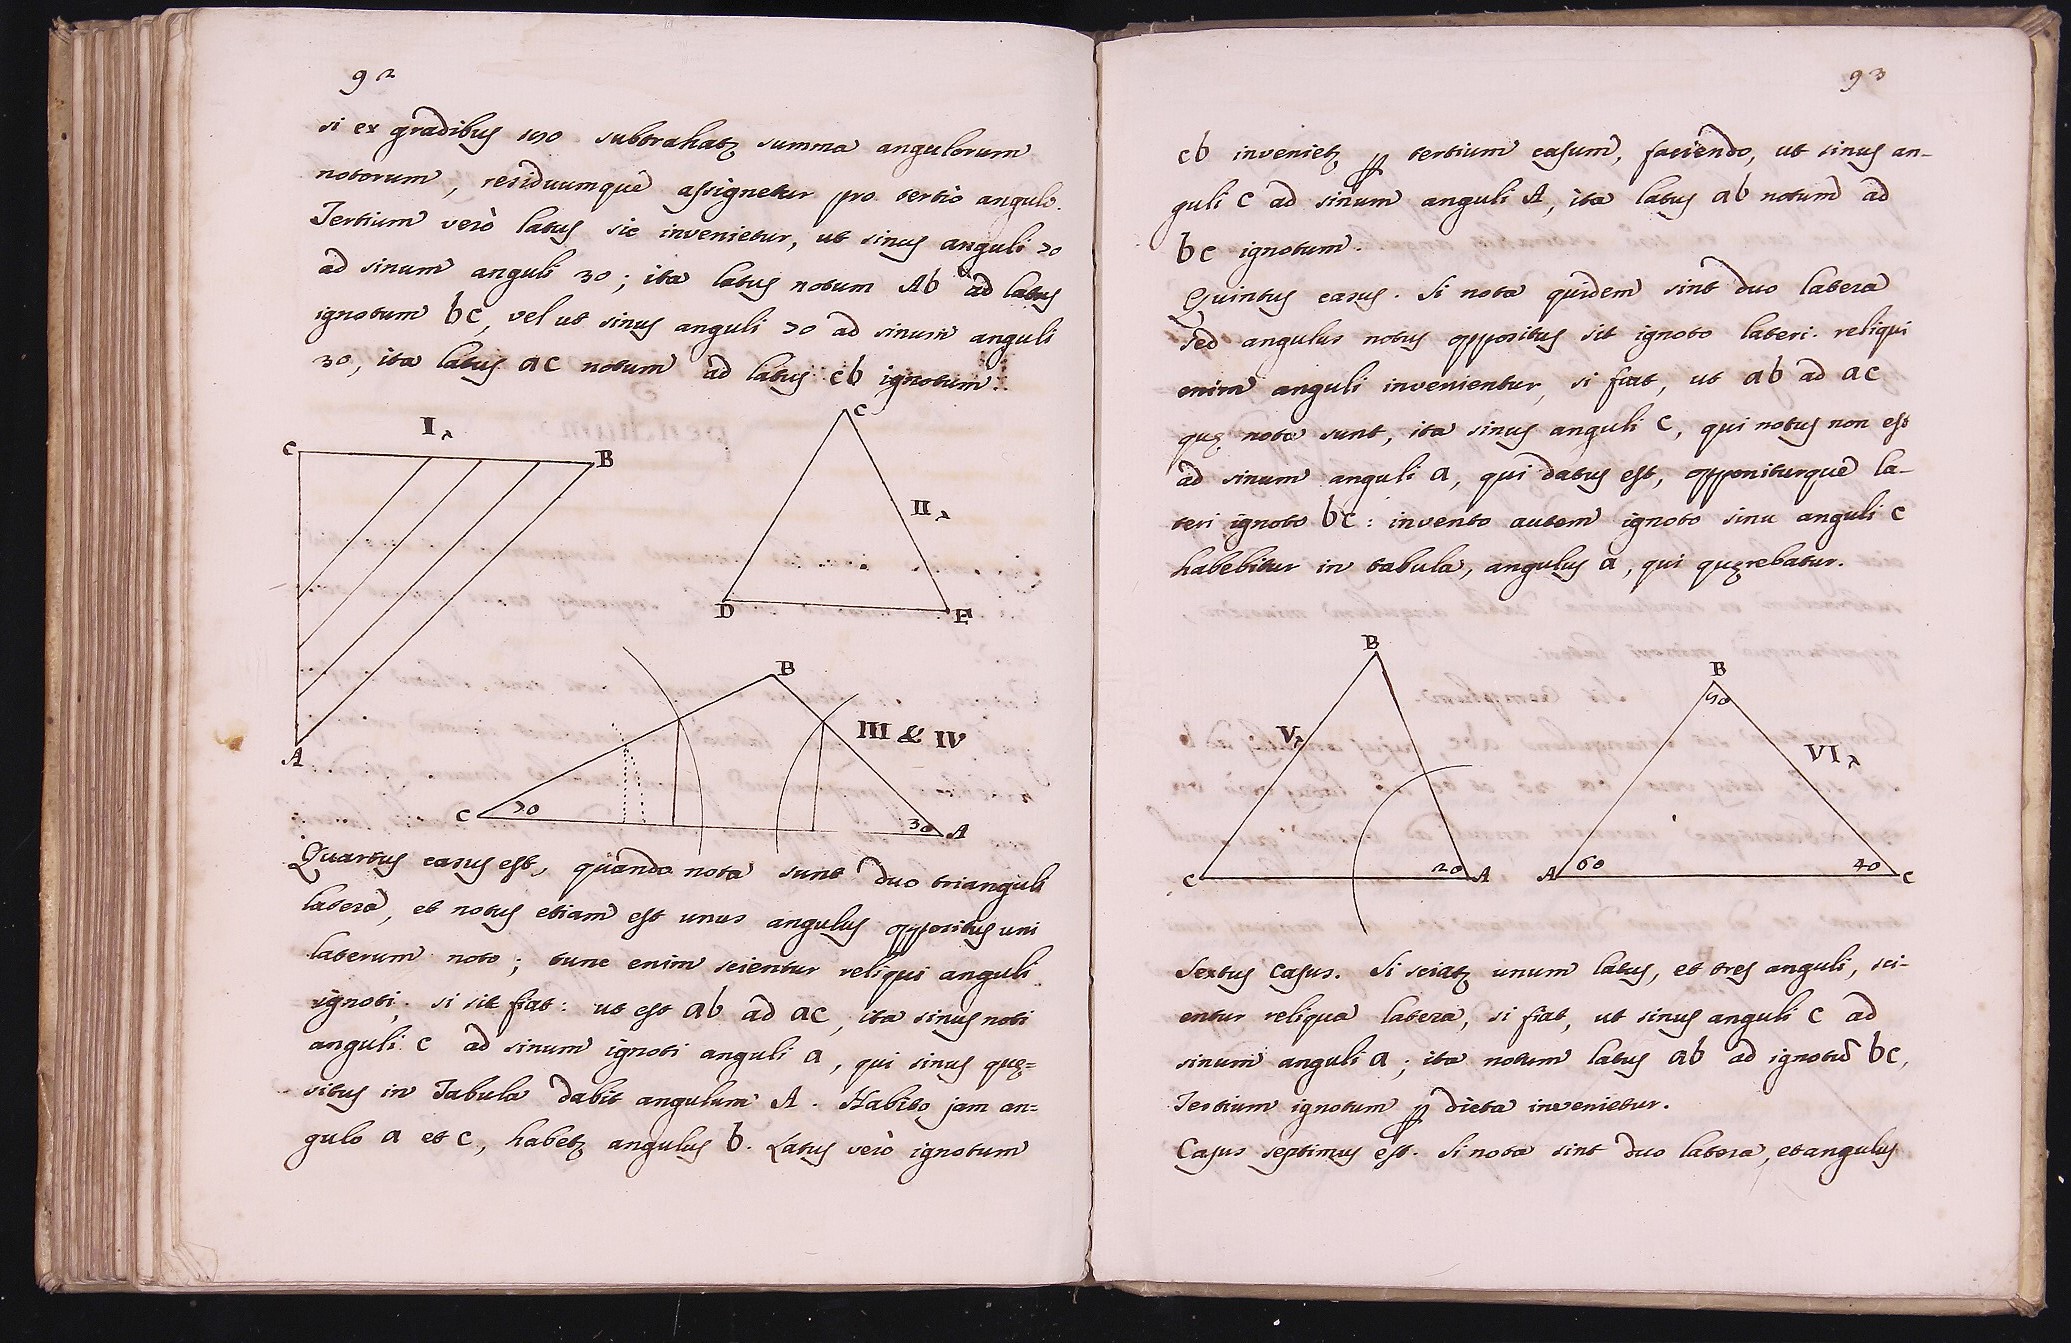 92
si ex gradibus 180 subtrahatz summa angulorum
notorum, residuumque assignetur pro tertio angulo.
Tertium verò latus sic invenietur, ut sinus anguli 20
ad sinum anguli 30; ita latus notum Ab ad latus
ignotum bc, vel ut sinus anguli 20 ad sinum anguli
30, ita latus ac notum ad latus cb ignotum.
I
C
B
A
C
II
D
E
B
III & IV
C
20
30
A
Quartus casus est, quando nota sunt duo trianguli
latera, et notus etiam est unus angulus oppositus uni
laterum noto; tunc enim scientur reliqui anguli
ignoti, si sit fiat: ut est ab ad ac, ita sinus noti
anguli c ad sinum ignoti anguli a, qui sinus quę=
situs in Tabula dabit angulum A. Habito jam an=
gulo a et c, habetz angulus b. Latus verò ignotum
93
cb invenietz p tertium casum, faciendo, ut sinus an-
guli c ad sinum anguli A, ita latus ab notum ad
bc ignotum.
Quintus casus. Si nota quidem sint duo latera
sed angulus notus oppositus sit ignoto lateri. reliqui
enim anguli invenientur, si fiat, ut ab ad ac
quę nota sunt, ita sinus anguli c, qui notus non est
ad sinum anguli a, qui datus est, opponiturque la-
teri ignoto bc: invento autem ignoto sinu anguli c
habebitur in tabula, angulus a, qui quęrebatur.
B
V
C
20
A
B
80
VI
A
60
40
C
Sextus casus. Si sciatz unum latus, et tres anguli, sci-
entur reliqua latera, si fiat, ut sinus anguli c ad
sinum anguli a; ita notum latus ab ad ignotū bc,
Tertium ignotum p dicta invenietur.
Casus septimus est. Si nota sint duo latera, et angulus